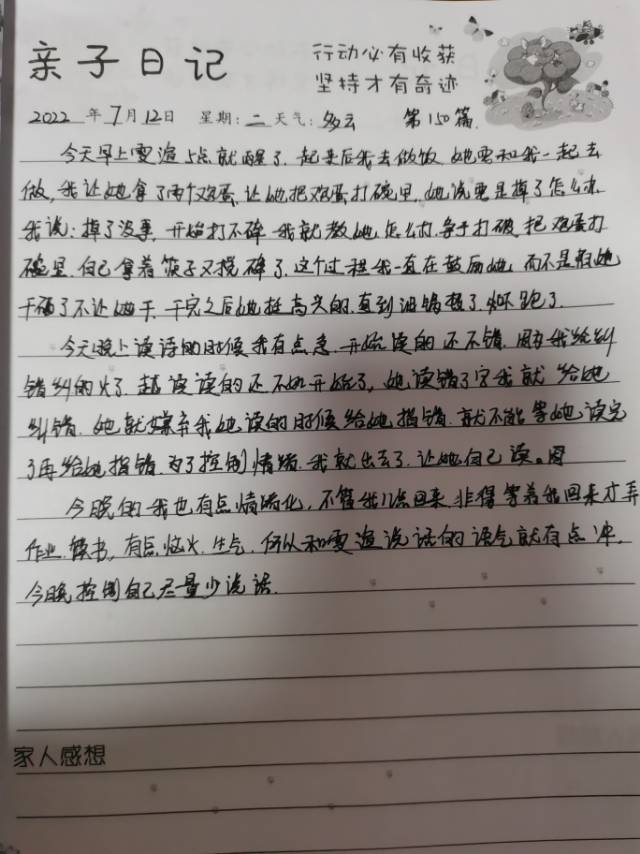 亲子日记
行动必有收获
坚持才有奇迹
2022年7月12日 星期:二 天气:多云 第150篇
今天早上雯渲5点就醒了.起来后我去做饭,她要和我一起去
做,我让她拿了两个鸡蛋,让她把鸡蛋打碗里,她说要是掉了怎么办
我说:掉了没事,开始打不碎我就教她怎么打,等于打破,把鸡蛋打
碗里,自己拿着筷子又搅碎了,这个过程我一直在鼓励她,而不是怕她
干砸了不让她干,干完之后她挺高兴的,直到油锅
今天晚上读诗的时候我有点急,开始读的还不错,因为我给纠
错纠的火了,越读读的还不如开始了,她读错了字我就给她
纠错,她就嫌弃我她读的时候给她指错,就不能等她读完
了再给她指错,为了控制情绪,我就出去了,让她自己读。因
今晚的我也有点情绪化,不管我几点回来,非得等着我回来才弄
作业、读书,有点恼火、生气,所以和雯渲说话的语气就有点冲,
今晚控制自己尽量少说话.
家人感想